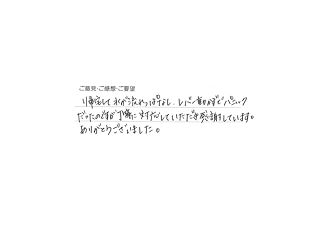 ご意見・ご感想・ご要望
帰宅して水が流れっぱなし、レバー動かずでパニック
だったのですが丁寧に対応していただき感謝しています。
ありがとうございました。